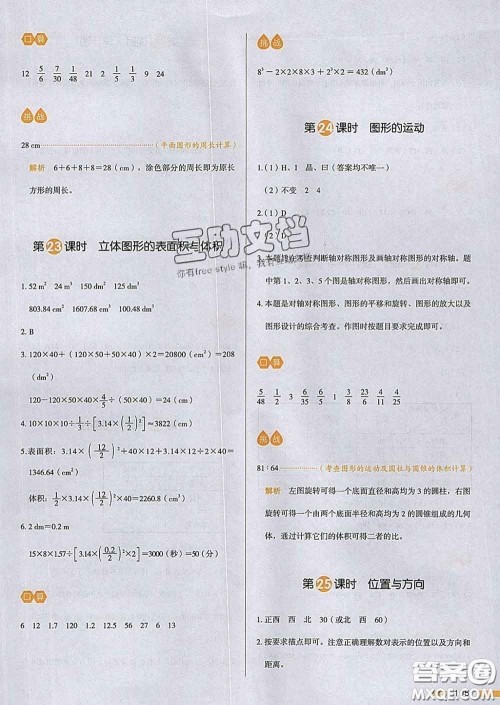 口算
12 5/6 7/30 1/48 21 2 1/5 1/3 9 24
挑战
28 cm（平面图形的周长计算）
解析 6+6+8+8=28（cm），涂色部分的周长即为原长
方形的周长。
第23课时 立体图形的表面积与体积
1. 52 m² 24 m³ 150 dm² 125 dm³
803.84 cm² 1607.68 cm³ 100.48 dm³
2. B
3. 120×40+（120×50+50×40）×2=20800（cm²）=208
（dm²）
120-120×50×40×4/5÷（50×40）
4. 10×10×10÷1/3÷[3.14×(1/2)²]≈3822（cm）
5. 表面积：3.14×(12/2)²+3.14×12×40×1/2+12×40=
1346.64（cm²）
体积：1/2×3.14×(12/2)²×40=2260.8（cm³）
6. 2 dm=0.2 m
15×8×1.57÷[3.14×(0.2/2)²×2]=3000（秒）=50（分）
口算
6 12 1.2 3.7 70 13 11 15 27 27 13
挑战
8³-2×2×8×3+2³×2=432（dm³）
第24课时 图形的运动
1.（1）H、1 晶、曰（答案均不唯一）
（2）不变 24
2.（1）D
3. 本题旨在考查判断轴对称图形及画轴对称图形的对称轴。题
中第1、2、3、5个图是轴对称图形，然后画出对称轴即可。
4. 本题是对轴对称图形、图形的平移和旋转、图形的放大以及
图形设计的综合考查。作图时按题目要求完成即可。
口算
5/48 1/2 3 6/35 6/5 1 3/8 6/7 2/9 1/4 8/25
挑战
81∶64（考查图形的运动及圆柱与圆锥的体积计算）
解析 左图旋转可得一个底面直径和高均为3的圆柱，右图
旋转可得由两个底面半径和高均为2的圆锥组成的几何
体，通过计算它们的体积可得二者的比。
第25课时 位置与方向
1. 正西 西 北 30（或北 西 60）
2. 按要求描点即可。注意正确理解数对表示的位置以及方向和
距离。
互助文档
你有free style 萌，我有互助
答案圈